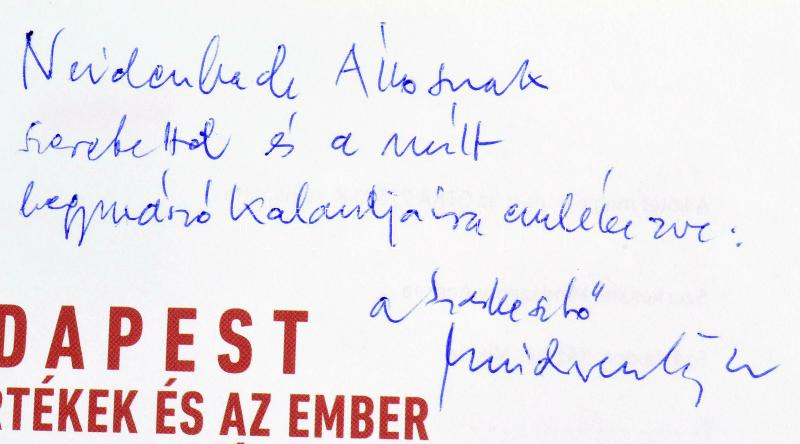 Neidenbach Ákosnak
szeretettel és a múlt
hegymászó kalandjaira emlékezve:
a „szerkesztő"
DAPEST
RTÉKEK ÉS AZ EMBER